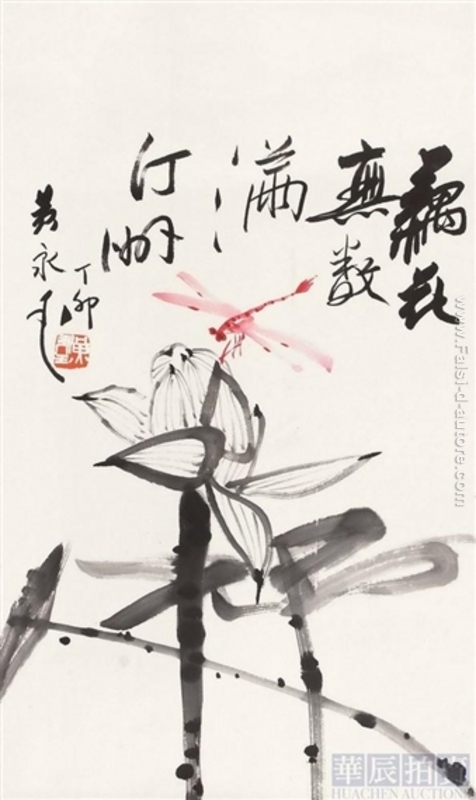 藕花
無数
滿
汀洲
丁卯
吴永良
www.Falsi-d-autore.com
華辰拍賣
HUACHEN AUCTIONS